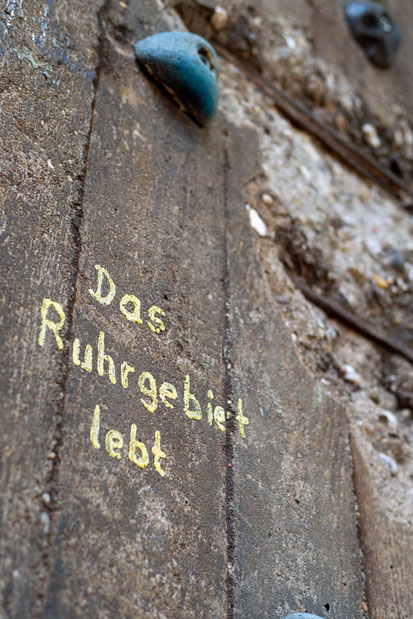 Das
Ruhrgebiet
lebt